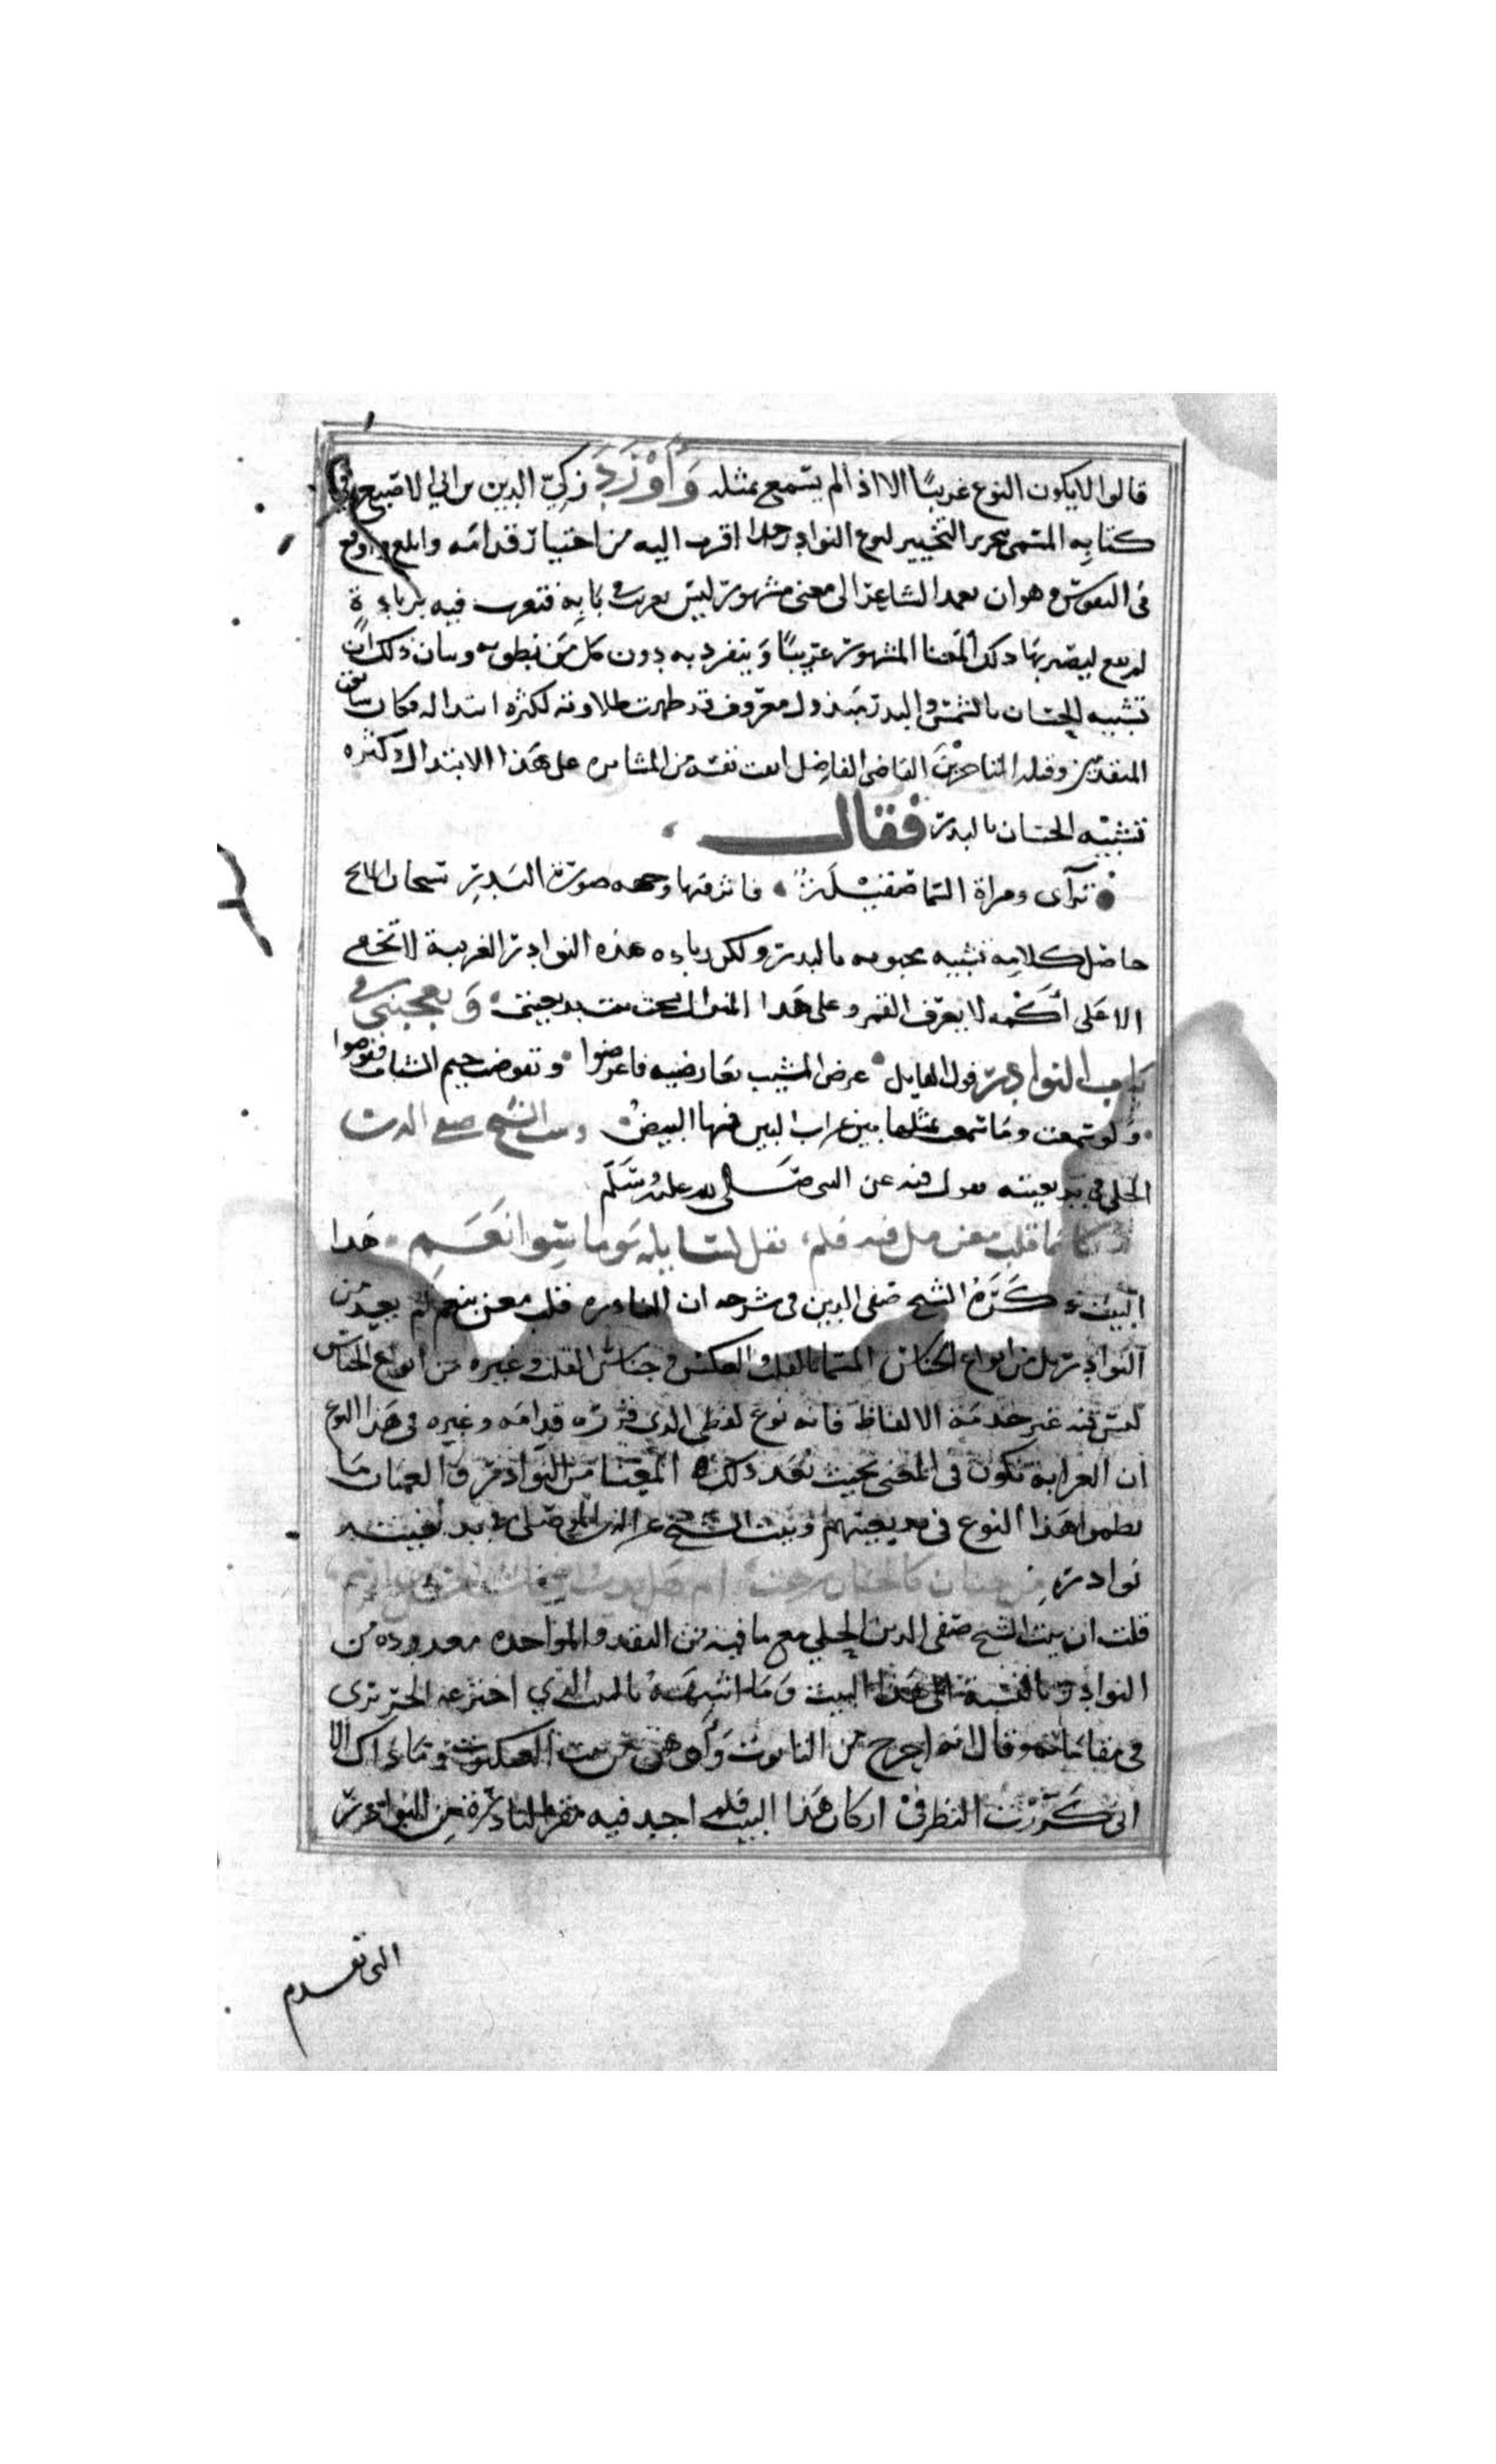 قالوا لا يكون النوع غريبًا الا اذا لم يسمع بمثله وَأَوْرَدَ زكيّ الدين بن ابي الاصبع في
كتابه المسمى بتحرير التحبير لنوع النوادر حدا اقرب اليه من اختيار قدامه وابلغ واوقع
فى النفوس وهو ان يعمد الشاعر الى معنى مشهور ليس بغريب في بابه فيغرب فيه بزيادة
لم تقع ليصير بها ذلك المعنا المشهور غريبًا وَينفرد به دون كل من نطق به وبيان ذلك ان
تشبيه الحسان بالشمس والبدر مبذول معروف قد ظهرت طلاوته لكثرة ابتذاله فكان سابق
المتقدمين وقبلة المتاخرين القاضى الفاضل انفت نفسه من المثابره على هذا الابتذال وكثره
تشبيه الحسان بالبدر فقال
تراآى ومراة السما صقيلة فاثر فيها وجهه صورة البَدرِ سبحان المانح
حاصل كلامه تشبيه محبوبه بالبدر ولكن زياده هذه النوادر الغريبة لا تخفى
الا عَلى أكْمه لا يعرف القمر وعلى هَدا المنوال نسجت بيت بديعيتى وَيعجبنى في
باب النوادر قول القايل عرض المشيب بعارضيه فاعرضوا وتقوضت خيم الشباب فقوضوا
وَلو سمعت وما سمعت بمثلها بين غراب البين فيها البيضُ وبيت الشيخ صفى الدين
الحلى في بديعيته يقول فيه عن النبى صَلى الله عليه وسَلّم
كانما قلب معن مل فيه فلم يقل لسايله يَوما سِوا نَعَمِ هَدا
البيت كَرَّهُ الشيخ صفى الدين فى شرحه ان النادره قلب معن بنعم لم يعد من
النوادر بل من انواع الجناس المسما بالقلب والعكس وجناس القلب وغيره من انواع الجناس
ليس فيه غير خدمَة الالفاظ فانه نوع لفظى الدى قرره قدامَه وغيره فى هَذا النوع
ان الغرابة تكون فى المعنى بحيث يُعَد ذلك المعنا من النوادر وَالعميان ما
نظموا هَذا النوع فى بديعيتهم وبيت الشيخ عز الدين الموصلى في بديعيته
نوادر من جنان كالجنان
قلت ان بيت الشيخ صفى الدين الحلي مع ما فيه من النقد والمواخده معدوده من
النوادر بالنسبة الى هَذا البيت وَمَا اشبهَهُ بالبيت الذي اخترعه الحريري
في مقاماته وقال انه احرج من التابوت وَأَوهَى من بيت العنكبوت وَمَا ذاك الا
انى كَرَّرْتُ النظر فى اركان هَذا البيت فلم اجد فيه مقرا لنادرة من النوادر
التى تقدم